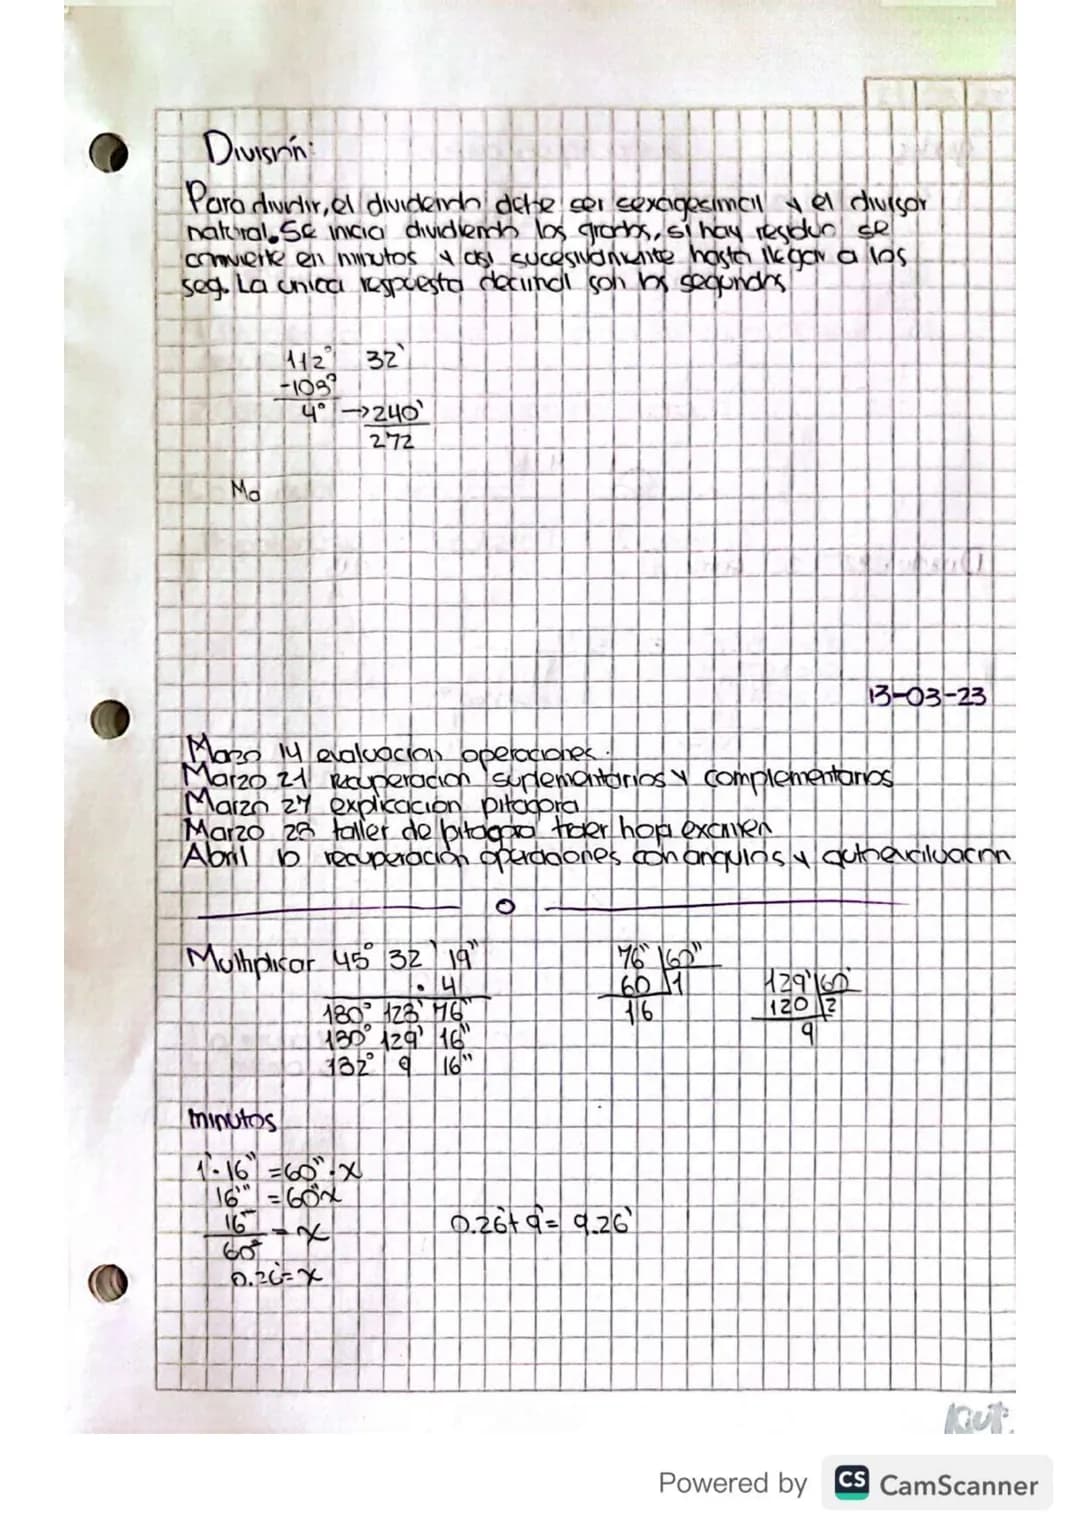 División:
Para dividir, el dividendo debe ser sexagesimal y el divisor
natural. Se inicia dividiendo los grados, si hay residuo se
convierte en minutos y asi sucesivamente hasta llegar a los
seg. La unica respuesta decimal son los segundos
112° 32'
-108°
4° →240'
272
Ma
13-03-23
Marzo 14 evaluacion operaciones.
Marzo 21 Recuperacion suplementarios y complementarios
Marzo 27 explicación pitagora
Marzo 28 taller de pitagora traer hoja examen
Abril 10 recuperación operaciones con angulos y autoevaluacion
Multiplicar 45° 32' 19"
. 4
180° 128' 76"
180° 129' 16"
182° 9 16"
76" 60"
60 1
16
129' 60'
120 2
9
minutos
1'·16" =60"·x
16" =60"x
16" = x
60"
0.26=x
0.26+9'= 9.26'
Powered by CS CamScanner